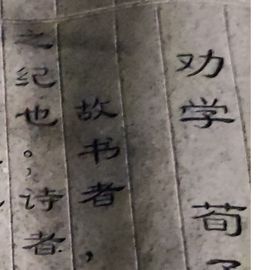 劝学 荀
故书者，
之纪也。诗者